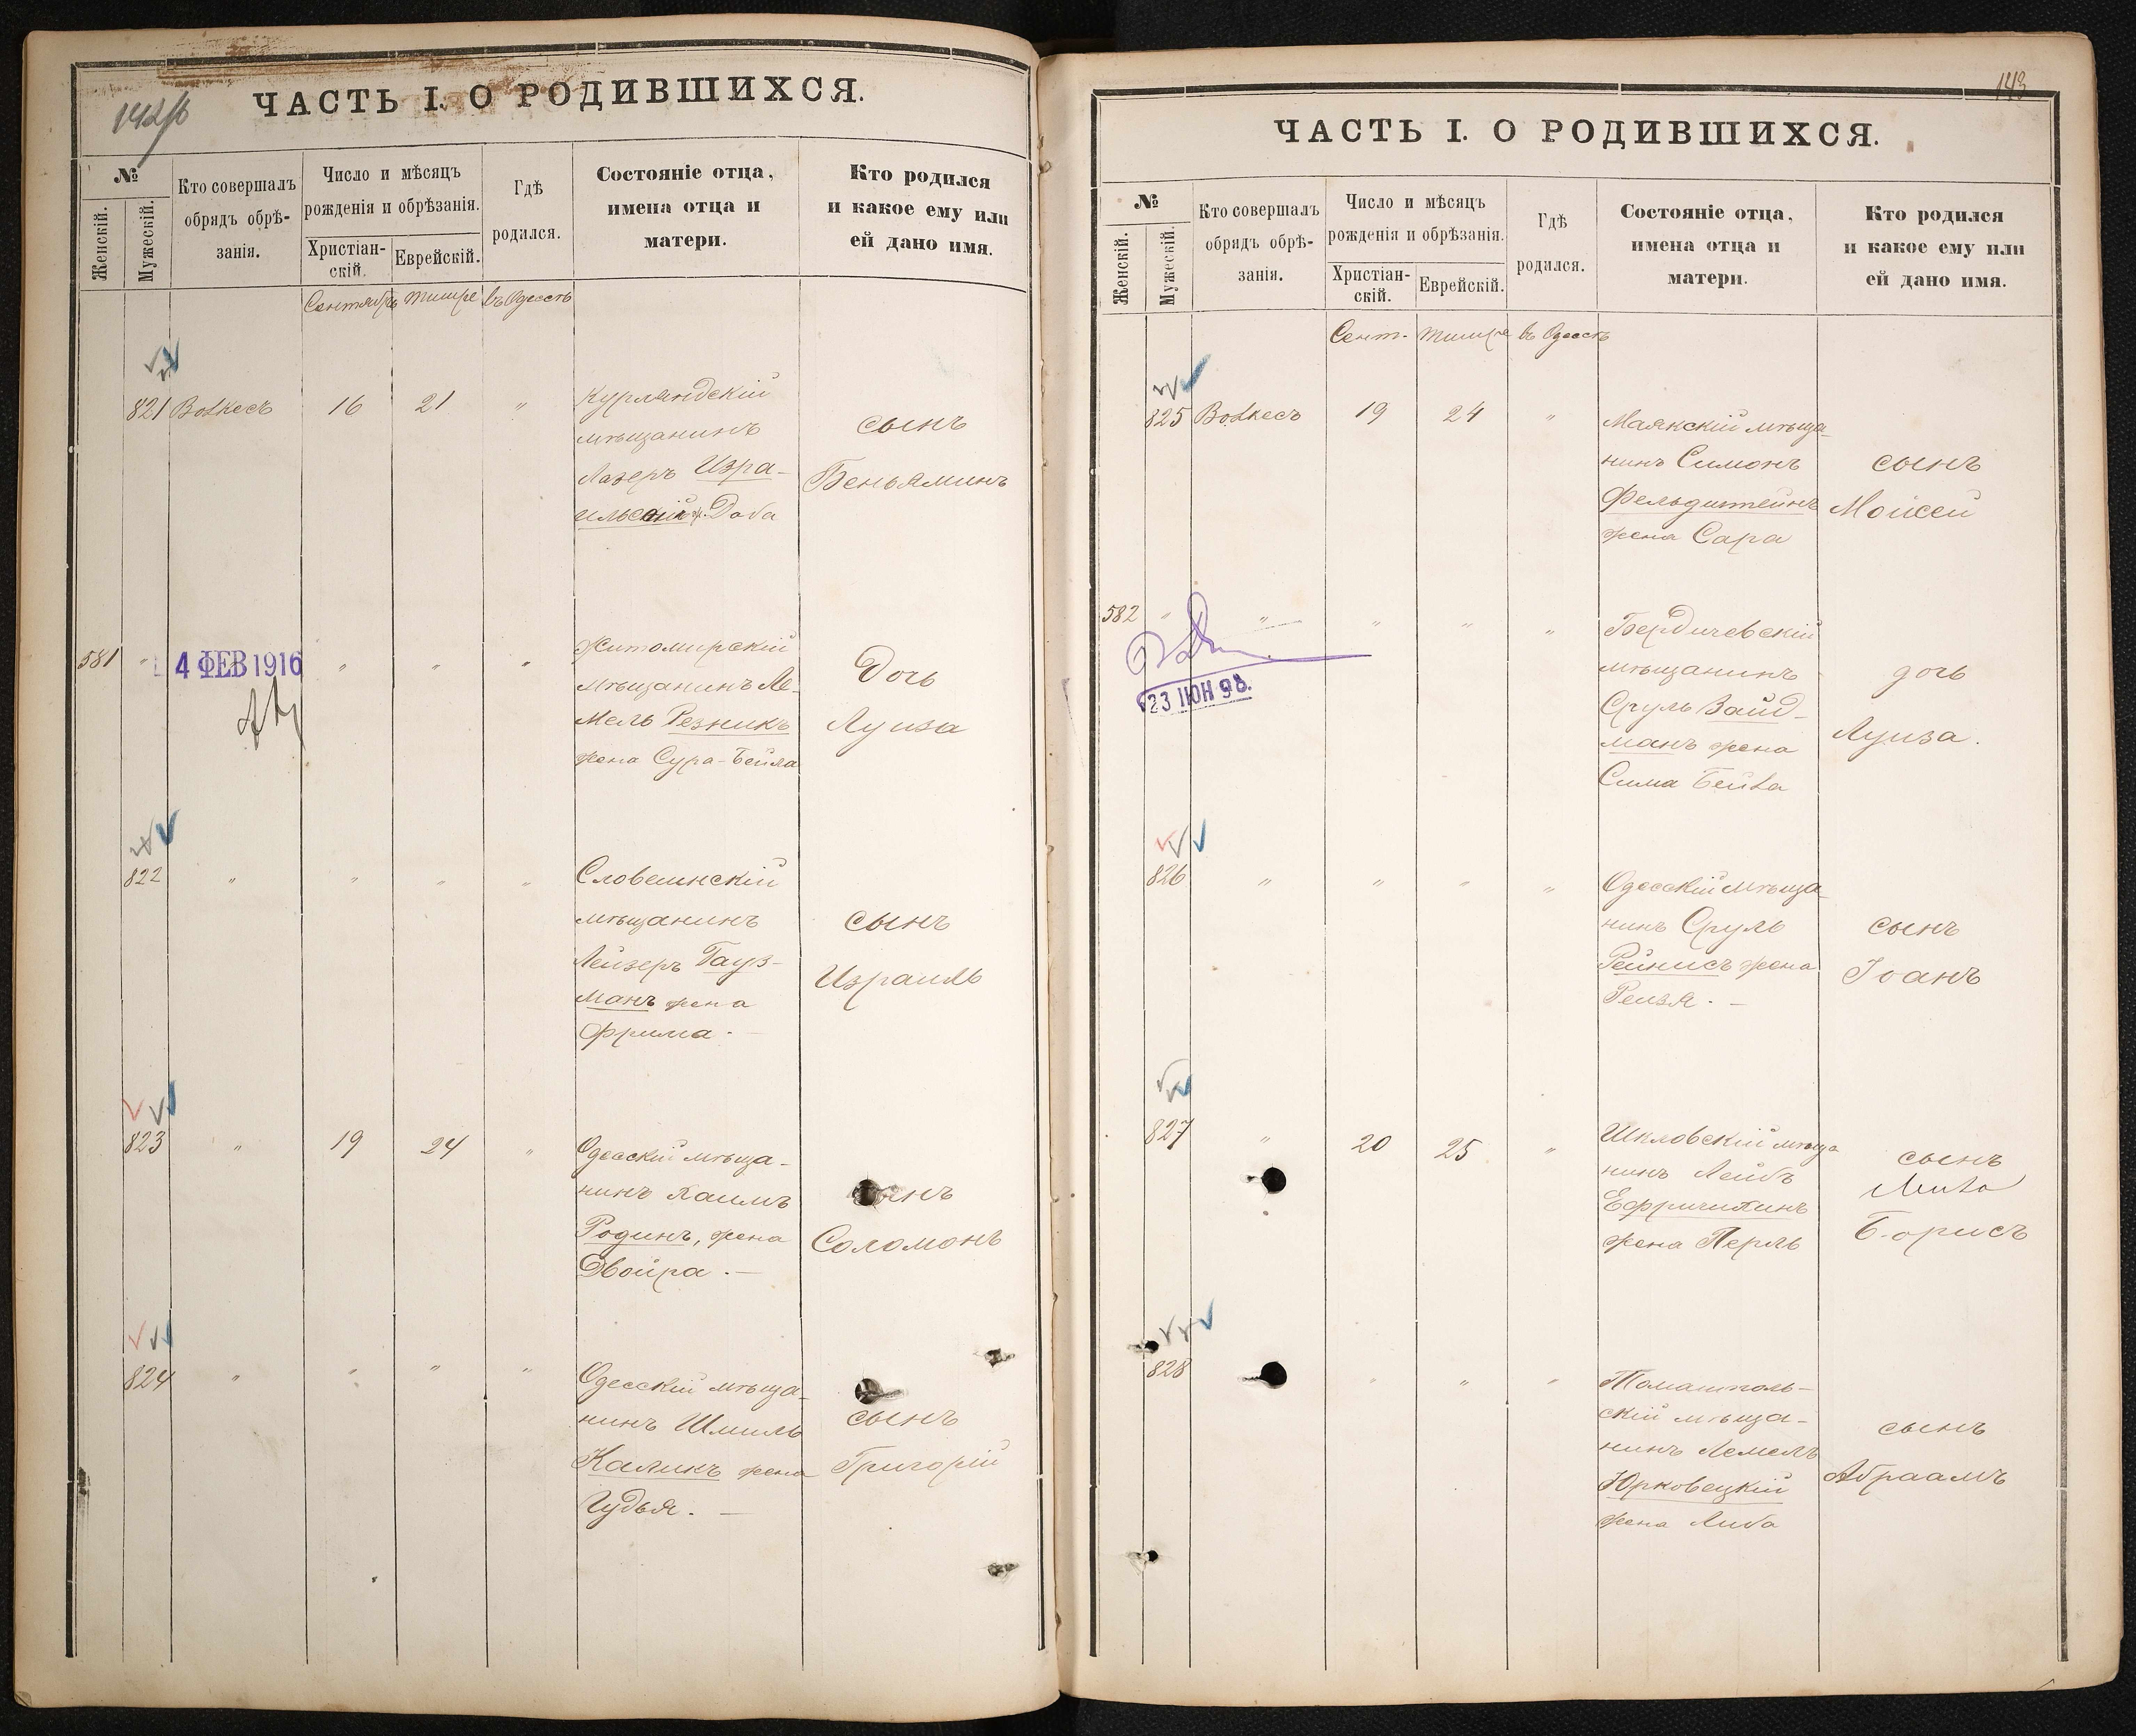 142/б
ЧАСТЬ I. О РОДИВШИХСЯ.
№
Женскій.
Мужескій.
Кто совершалъ
обрядъ обрѣ-
занія.
Число и мѣсяцъ
рожденія и обрѣзанія.
Христіан-
скій.
Еврейскій.
Гдѣ
родился.
Состояніе отца,
имена отца и
матери.
Кто родился
и какое ему или
ей дано имя.
Сентябрь Тишре въ Одессѣ
821 Волкесъ 16 21 "
Курляндскій
мѣщанинъ
Лазеръ Изра-
ильскій ж. Доба
сынъ
Беньяминъ
581 " 4 ФЕВ 1916 " " "
Житомирскій
мѣщанинъ Ле-
мель Резникъ
жена Сура-Бейла
Дочь
Луиза
822 " " " "
Словечинскій
мѣщанинъ
Лейзеръ Гауз-
манъ жена
Фрима. —
сынъ
Израиль
823 " 19 24 "
Одесскій мѣща-
нинъ Хаимъ
Родинъ, жена
Двойра. —
сынъ
Соломонъ
824 " " " "
Одесскій мѣща-
нинъ Шмиль
Каликъ жена
Чудья. —
сынъ
Григорій
143
ЧАСТЬ I. О РОДИВШИХСЯ.
№
Женскій.
Мужескій.
Кто совершалъ
обрядъ обрѣ-
занія.
Число и мѣсяцъ
рожденія и обрѣзанія.
Христіан-
скій.
Еврейскій.
Гдѣ
родился.
Состояніе отца,
имена отца и
матери.
Кто родился
и какое ему или
ей дано имя.
Сент. Тишре въ Одессѣ
825 Волкесъ 19 24 "
Маякскій мѣща-
нинъ Симонъ
Фельдштейнъ
жена Сара
сынъ
Мойсей
582 " " " " "
23 ІЮН 98.
Бердичевскій
мѣщанинъ
Сруль Зайд-
манъ жена
Сима Бейла
дочь
Луиза.
826 " " " "
Одесскій мѣща-
нинъ Сруль
Рейнисъ жена
Рейзя. —
сынъ
Іоанъ
827 " 20 25 "
Шкловскій мѣща
нинъ Лейбъ
Ефричихинъ
жена Перль
сынъ
Борисъ
828 " " "
Томашполь-
скій мѣща-
нинъ Лемель
Юрковецкій
жена Либа
сынъ
Абраамъ